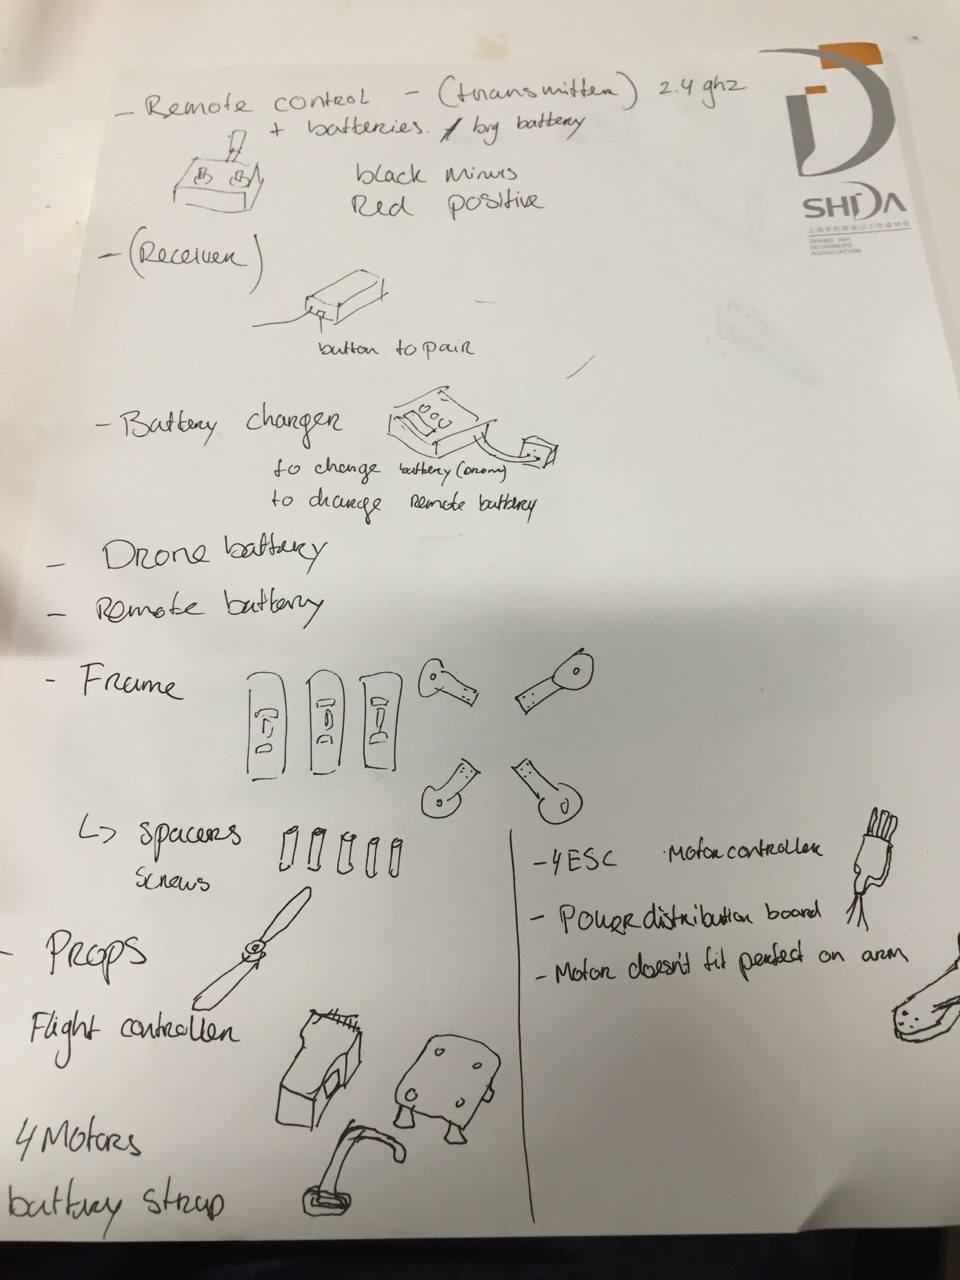 - Remote control - (transmitter) 2.4 ghz
+ batteries. / big battery
black minus
Red positive
SHIDA
SHANG HAI
DESIGNERS
ASSOCIATION
- (Receiver)
button to pair
- Battery charger
to charge battery (Drone)
to charge remote battery
- Drone battery
- Remote battery
- Frame
↳ spacers
screws
- Props
Flight controller
4 Motors
battery strap
- 4 ESC Motor controller
- Power distribution board
- Motor doesn't fit perfect on arm